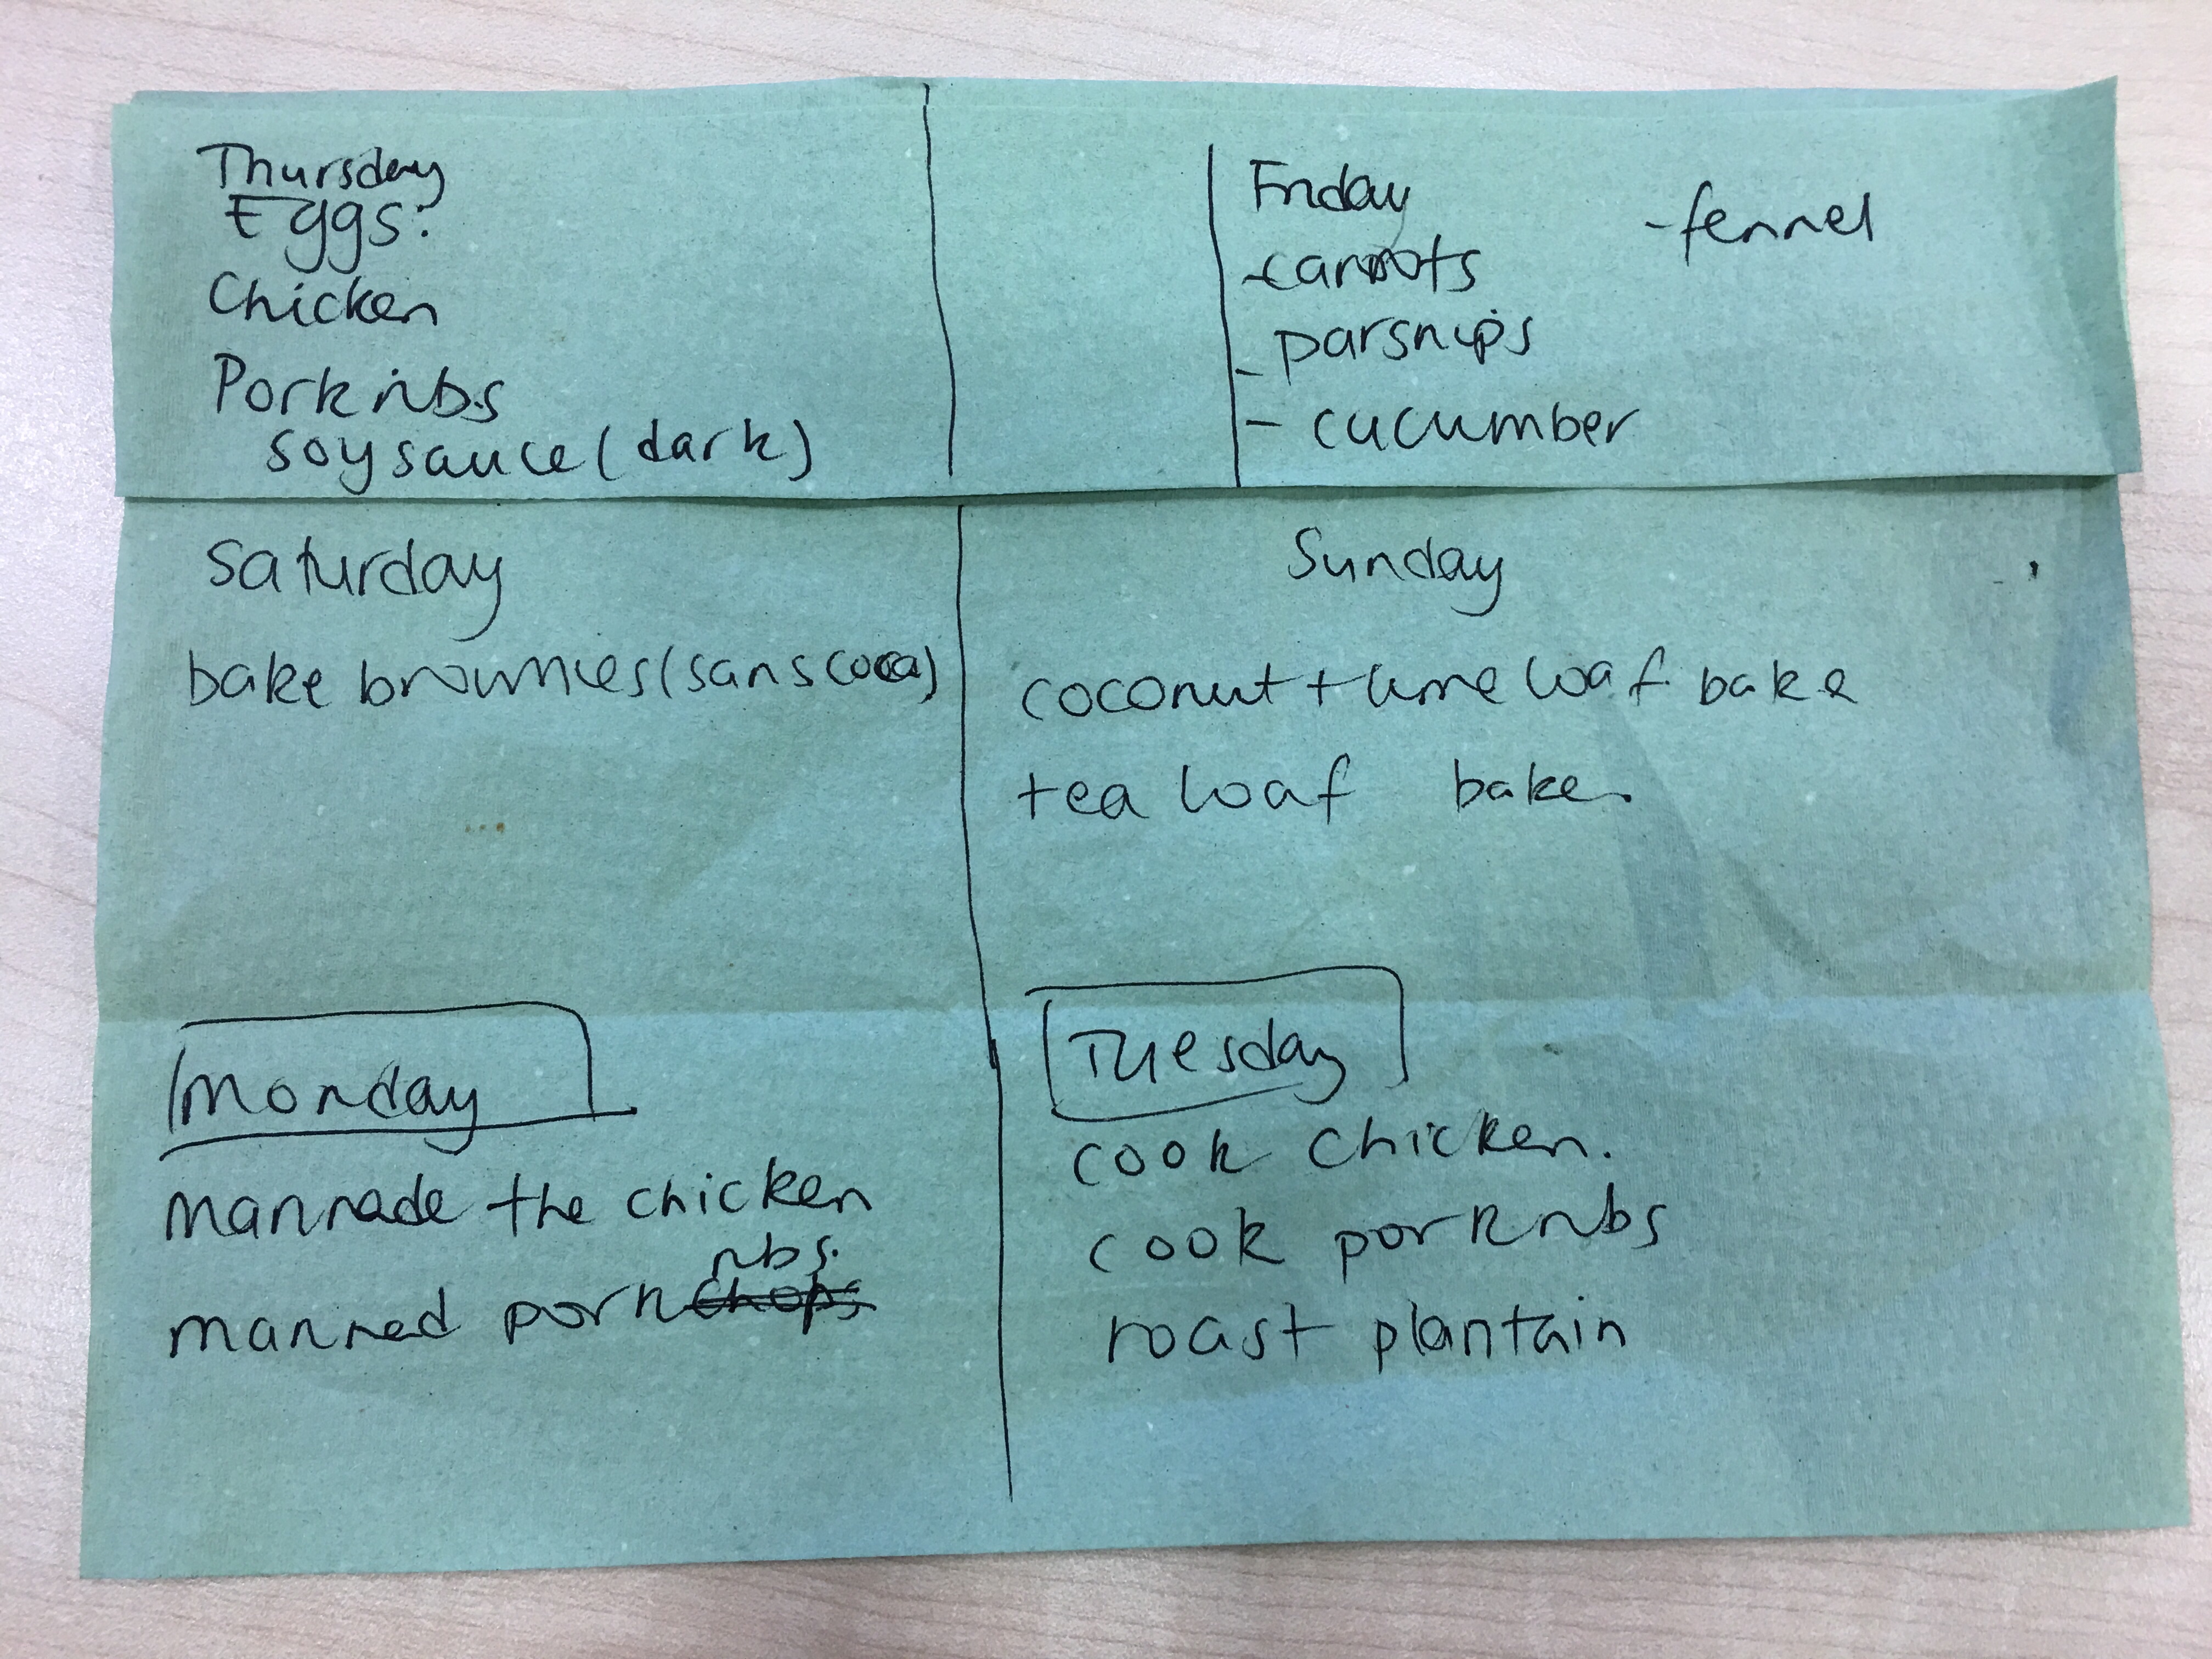 Thursday
Eggs?
Chicken
Pork ribs
soy sauce (dark)
Friday
- carrots
- parsnips
- cucumber
- fennel
Saturday
bake brownies (sans coca)
Sunday
coconut + lime loaf bake
tea loaf bake.
Monday
marinade the chicken
ribs.
marined pork chops
Tuesday
cook chicken.
cook pork ribs
roast plantain